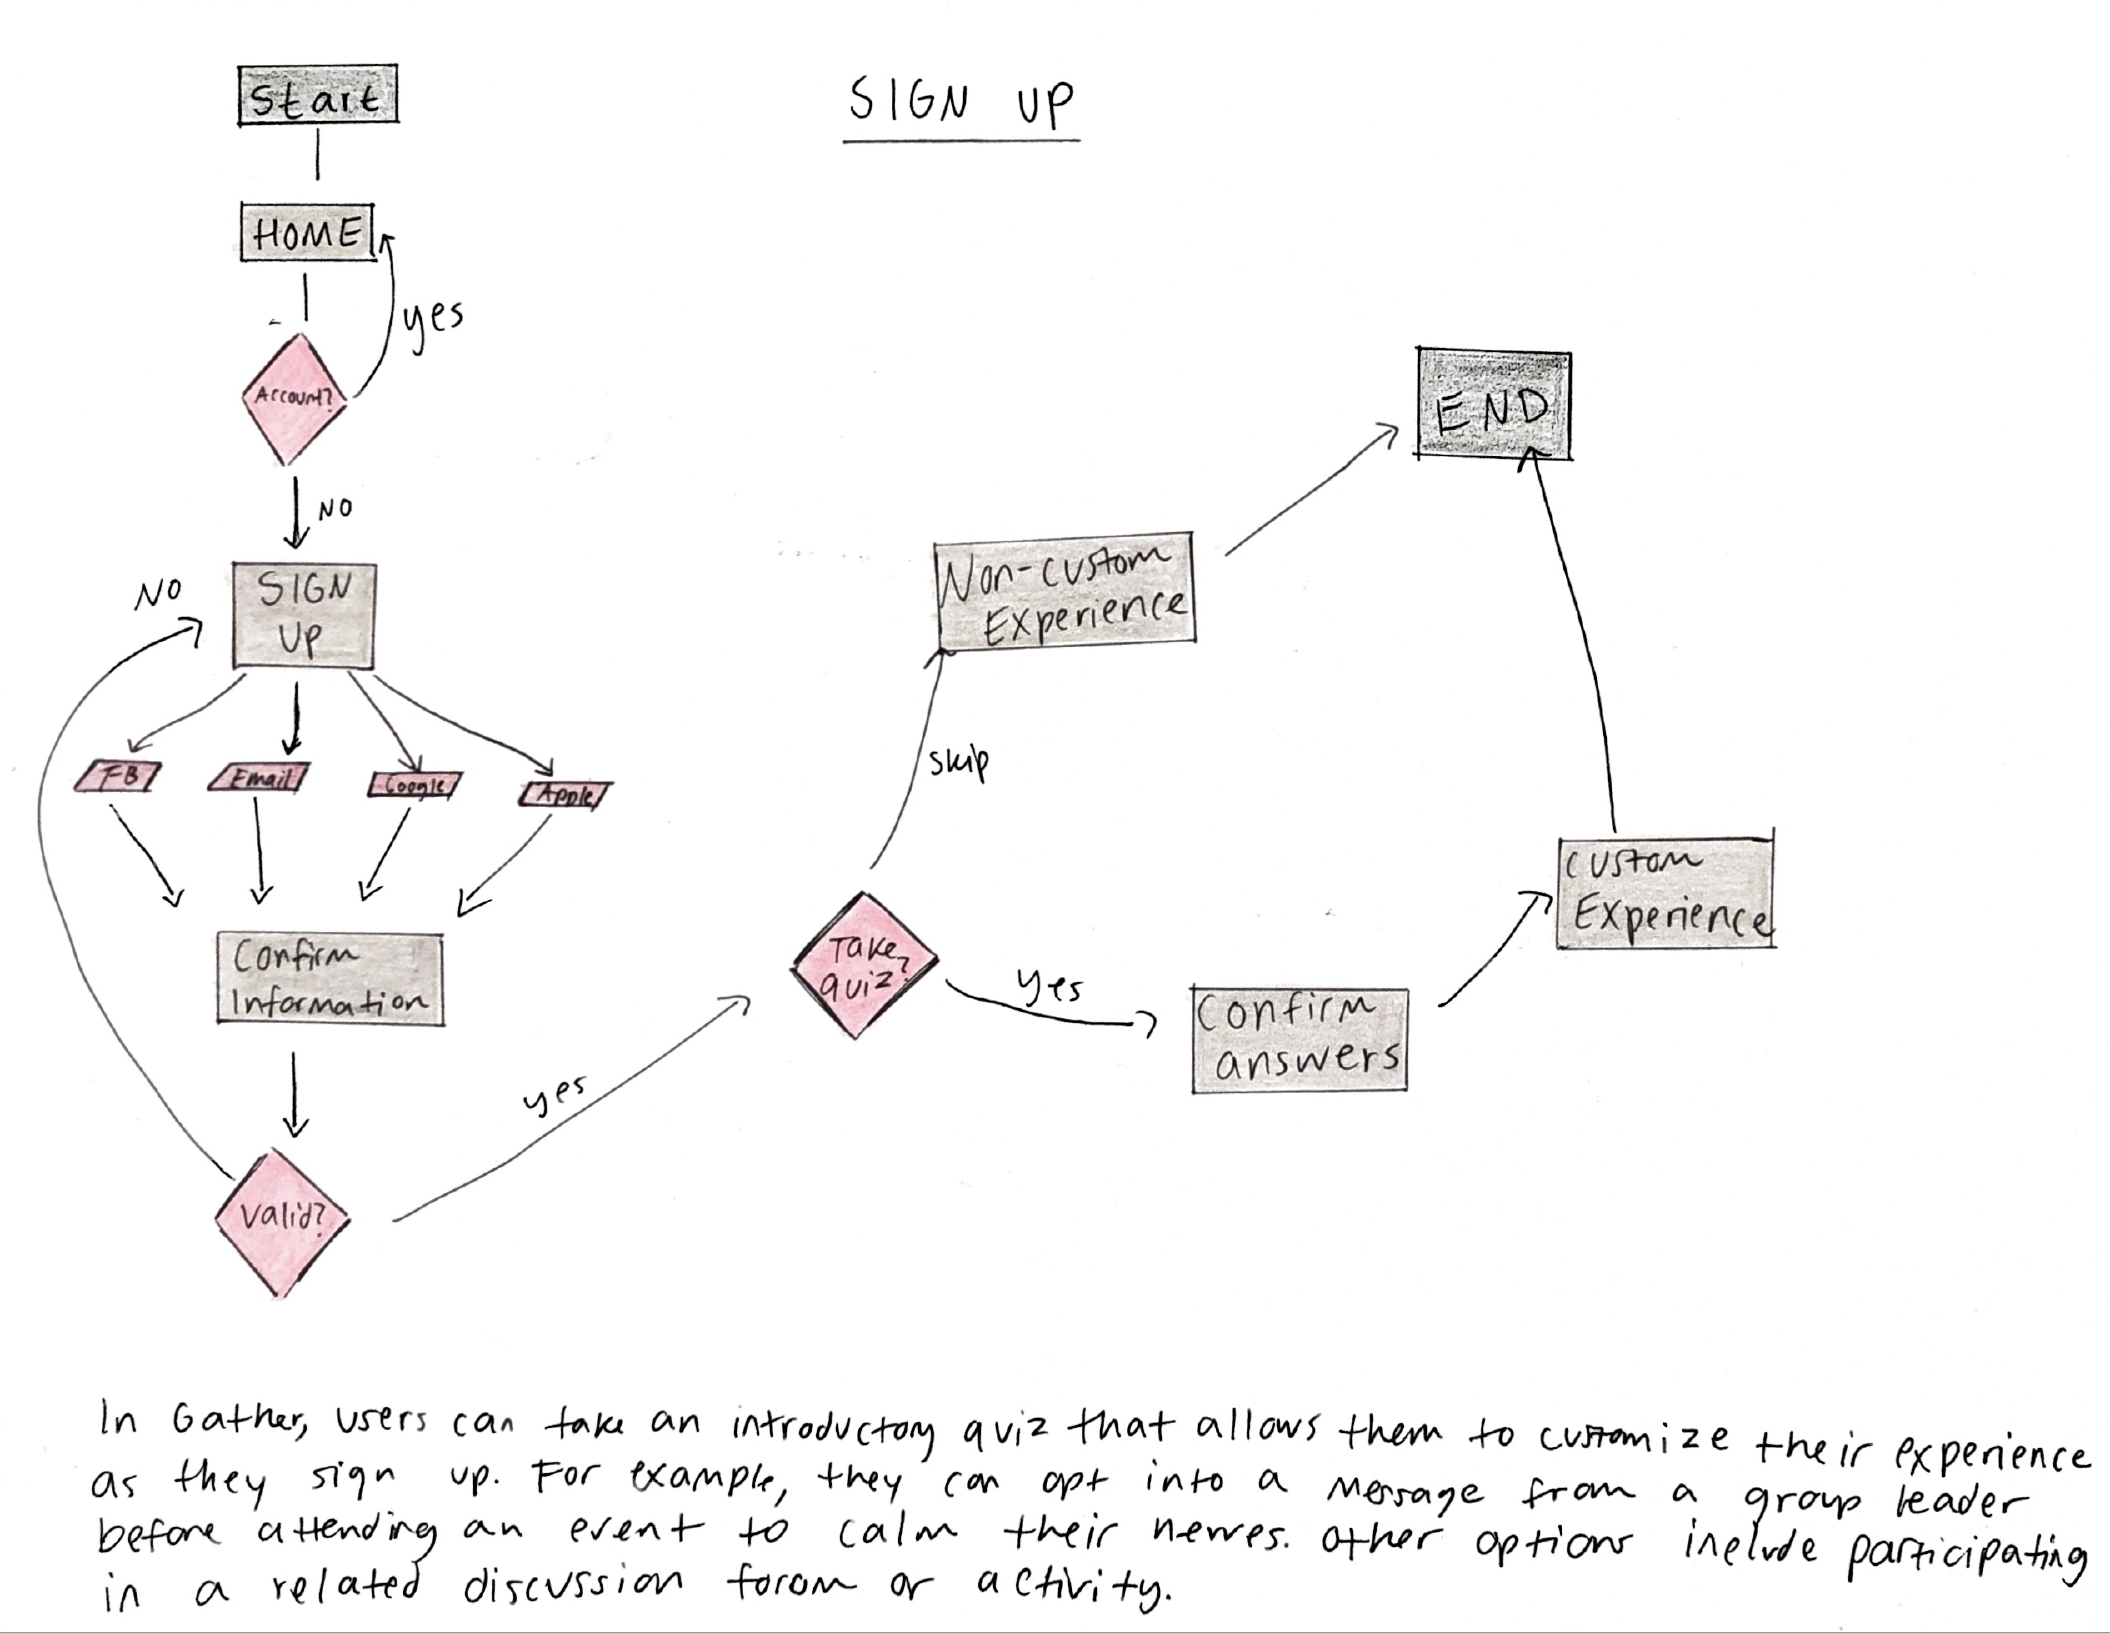 SIGN UP
Start
HOME
yes
Account?
NO
SIGN
UP
NO
FB
Email
Google
Apple
Confirm
Information
Valid?
yes
Take
quiz?
skip
Non-custom
Experience
yes
Confirm
answers
Custom
Experience
END
In Gather, users can take an introductory quiz that allows them to customize their experience
as they sign up. For example, they can opt into a message from a group leader
before attending an event to calm their nerves. Other options include participating
in a related discussion forum or activity.